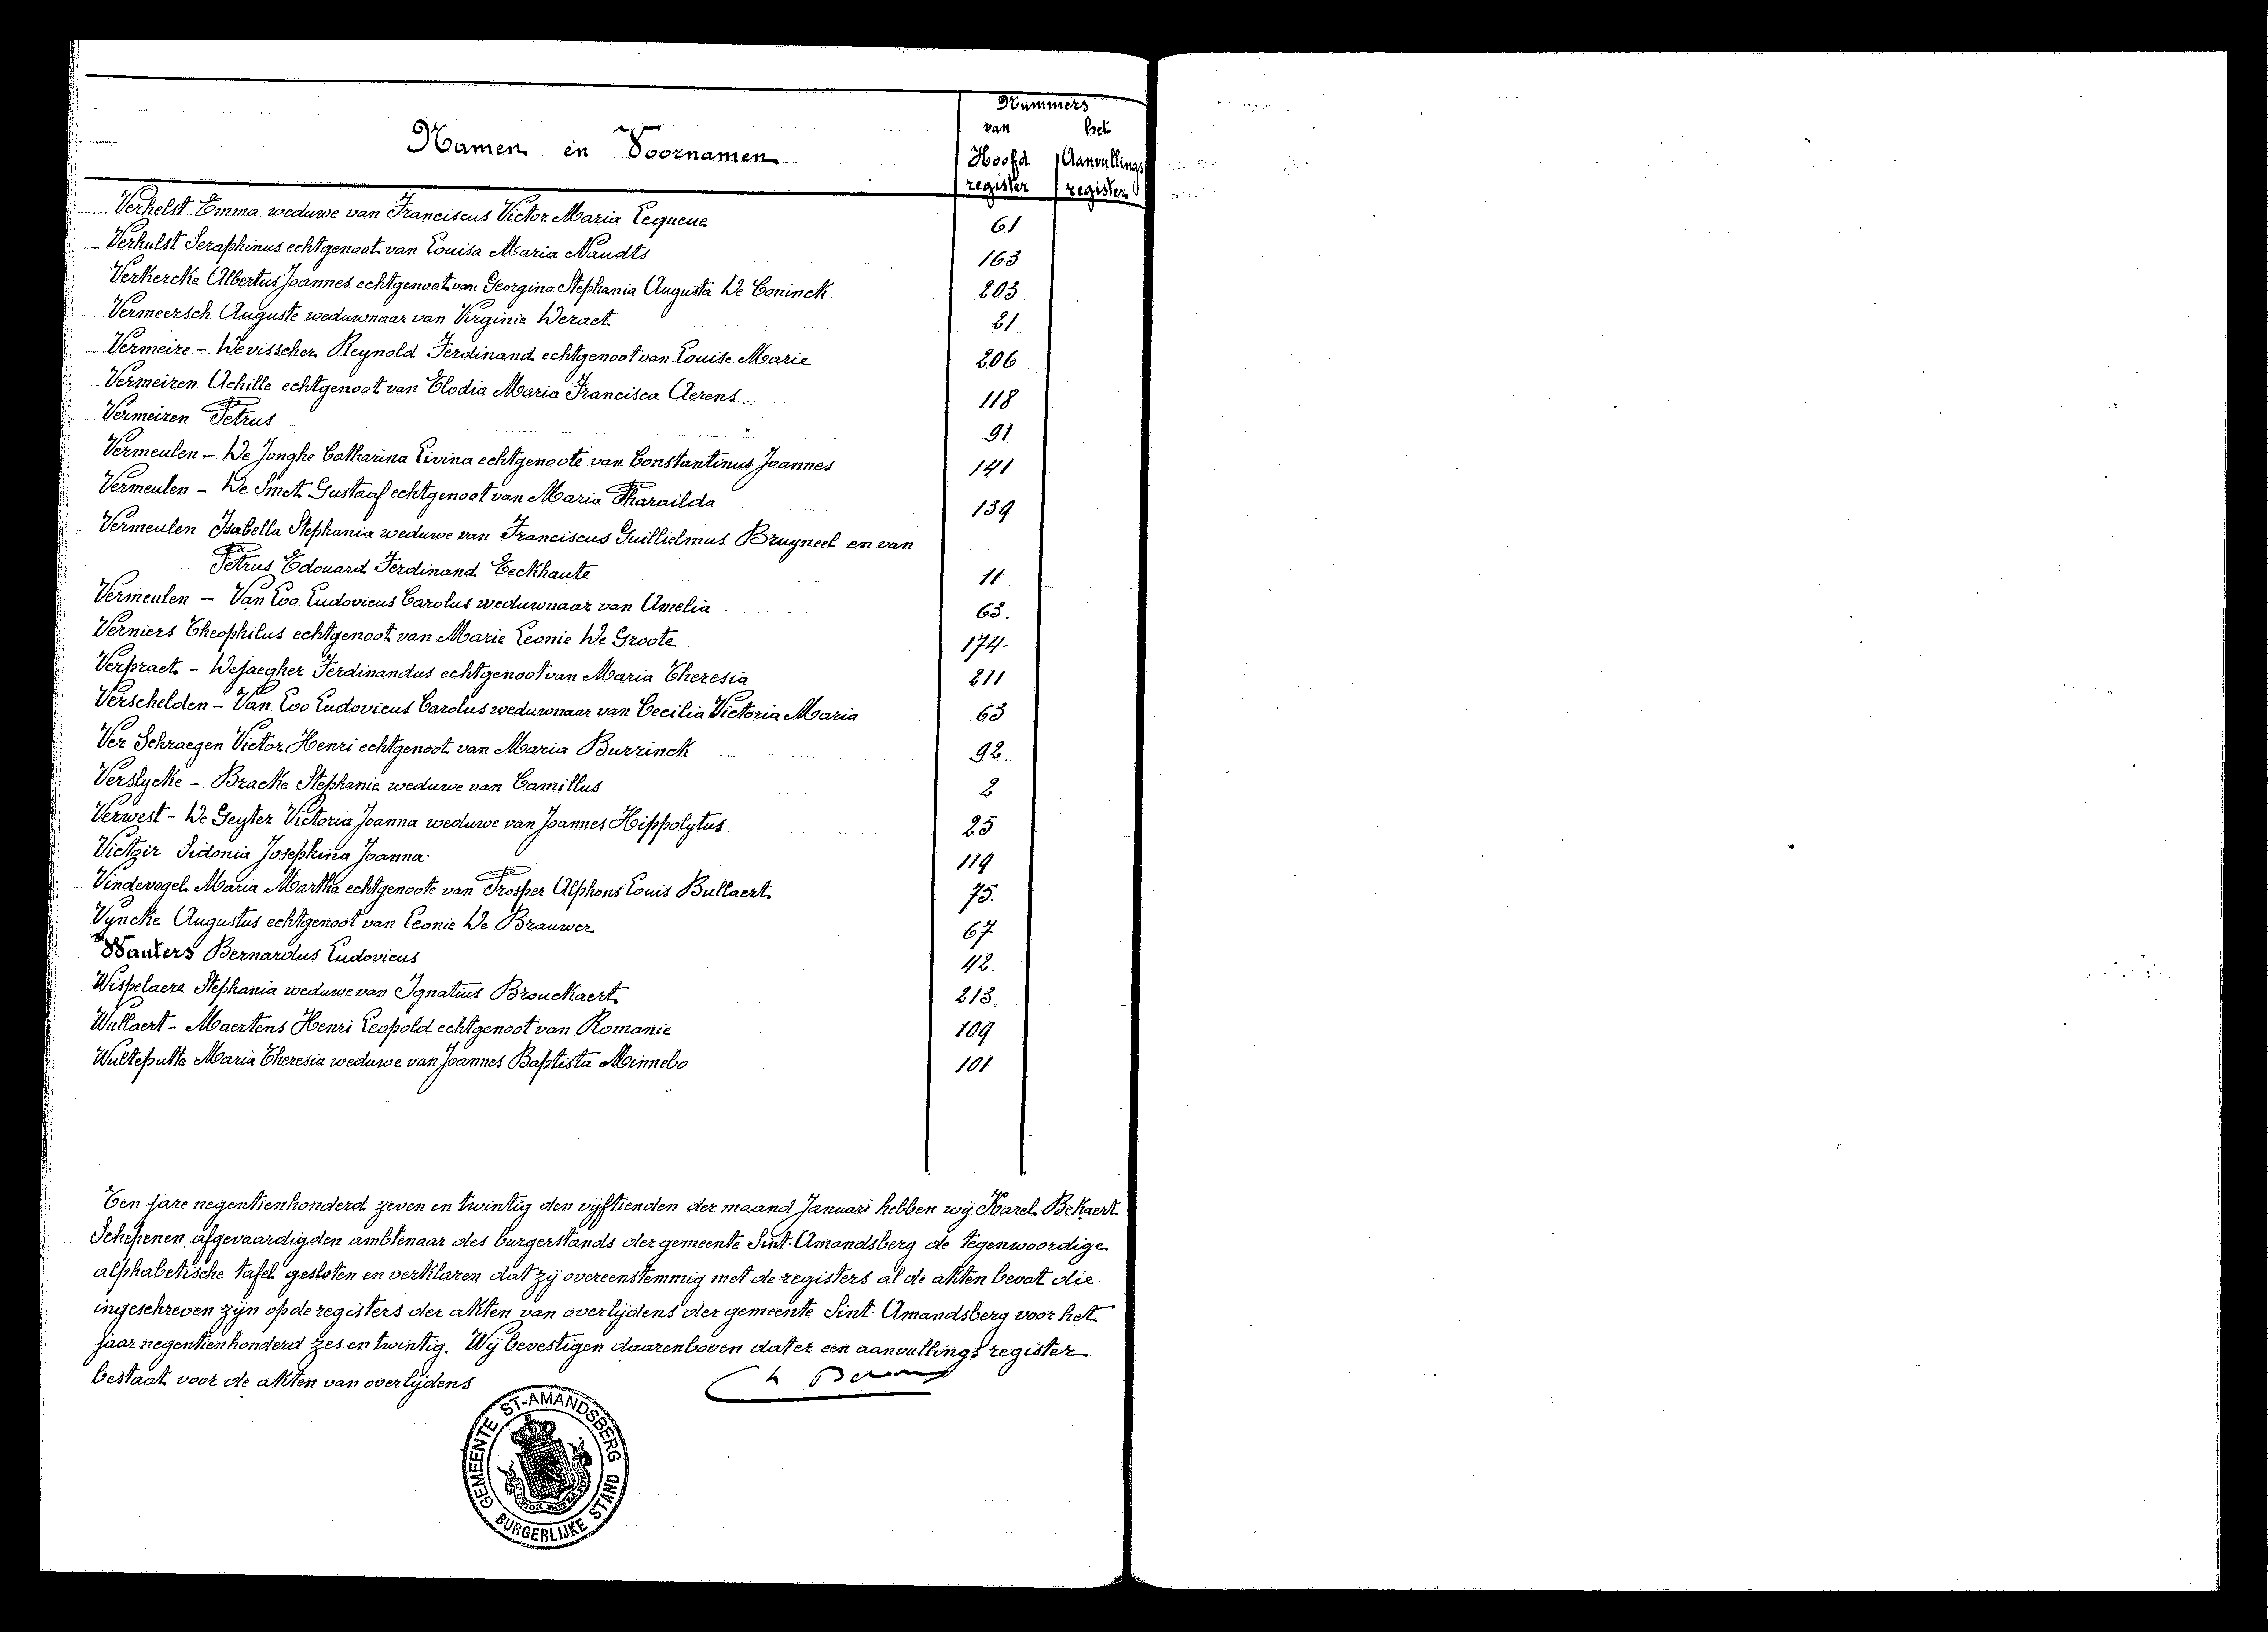 Nummers
van het
Namen en Voornamen
Hoofd Aanvullings
register register
Verhelst Emma weduwe van Franciscus Victor Maria Lequeue 61
Verhulst Seraphinus echtgenoot van Louisa Maria Naudts 163
Verkercke Albertus Joannes echtgenoot van Georgina Stephania Augusta De Coninck 203
Vermeersch Auguste weduwnaar van Virginie Deraet 21
Vermeire - Devisscher Reynold Ferdinand echtgenoot van Louise Marie 206
Vermeiren Achille echtgenoot van Elodia Maria Francisca Aerens 118
Vermeiren Petrus 91
Vermeulen - De Jonghe Catharina Livina echtgenoote van Constantinus Joannes 141
Vermeulen - De Smet Gustaaf echtgenoot van Maria Pharaïlda 139
Vermeulen Isabella Stephania weduwe van Franciscus Guillielmus Bruyneel en van
Petrus Edouard Ferdinand Eeckhaute 11
Vermeulen - Van Loo Ludovicus Carolus weduwnaar van Amelia 63.
Verniers Theophilus echtgenoot van Marie Leonie De Groote 174.
Verpraet - Dejaegher Ferdinandus echtgenoot van Maria Theresia 211
Verschelden - Van Loo Ludovicus Carolus weduwnaar van Cecilia Victoria Maria 63
Ver Schraegen Victor Henri echtgenoot van Maria Burrinck 92.
Verslycke - Bracke Stephanie weduwe van Camillus 2
Verwest - De Geyter Victoria Joanna weduwe van Joannes Hippolytus 25
Vietzir Sidonia Josephina Joanna 119
Vindevogel Maria Martha echtgenoote van Prosper Alphons Louis Bullaert 75.
Vyncke Augustus echtgenoot van Leonie De Brauwer 67
Wauters Bernardus Ludovicus 42.
Wispelaere Stephania weduwe van Ignatius Brouckaert 213.
Wullaert - Maertens Henri Leopold echtgenoot van Romanie 109
Wulteputte Maria Theresia weduwe van Joannes Baptista Minnebo 101
Ten jare negentienhonderd zeven en twintig den vijftienden der maand Januari hebben wij Karel Bekaert
Schepenen, afgevaardigden ambtenaar des burgerstands der gemeente Sint-Amandsberg de tegenwoordige
alphabetische tafel gesloten en verklaren dat zij overeenstemmig met de registers al de akten bevat die
ingeschreven zijn op de registers der akten van overlijdens der gemeente Sint-Amandsberg voor het
jaar negentienhonderd zes en twintig. Wij bevestigen daarenboven dat er een aanvullings register
bestaat voor de akten van overlijdens
GEMEENTE ST-AMANDSBERG
BURGERLIJKE STAND